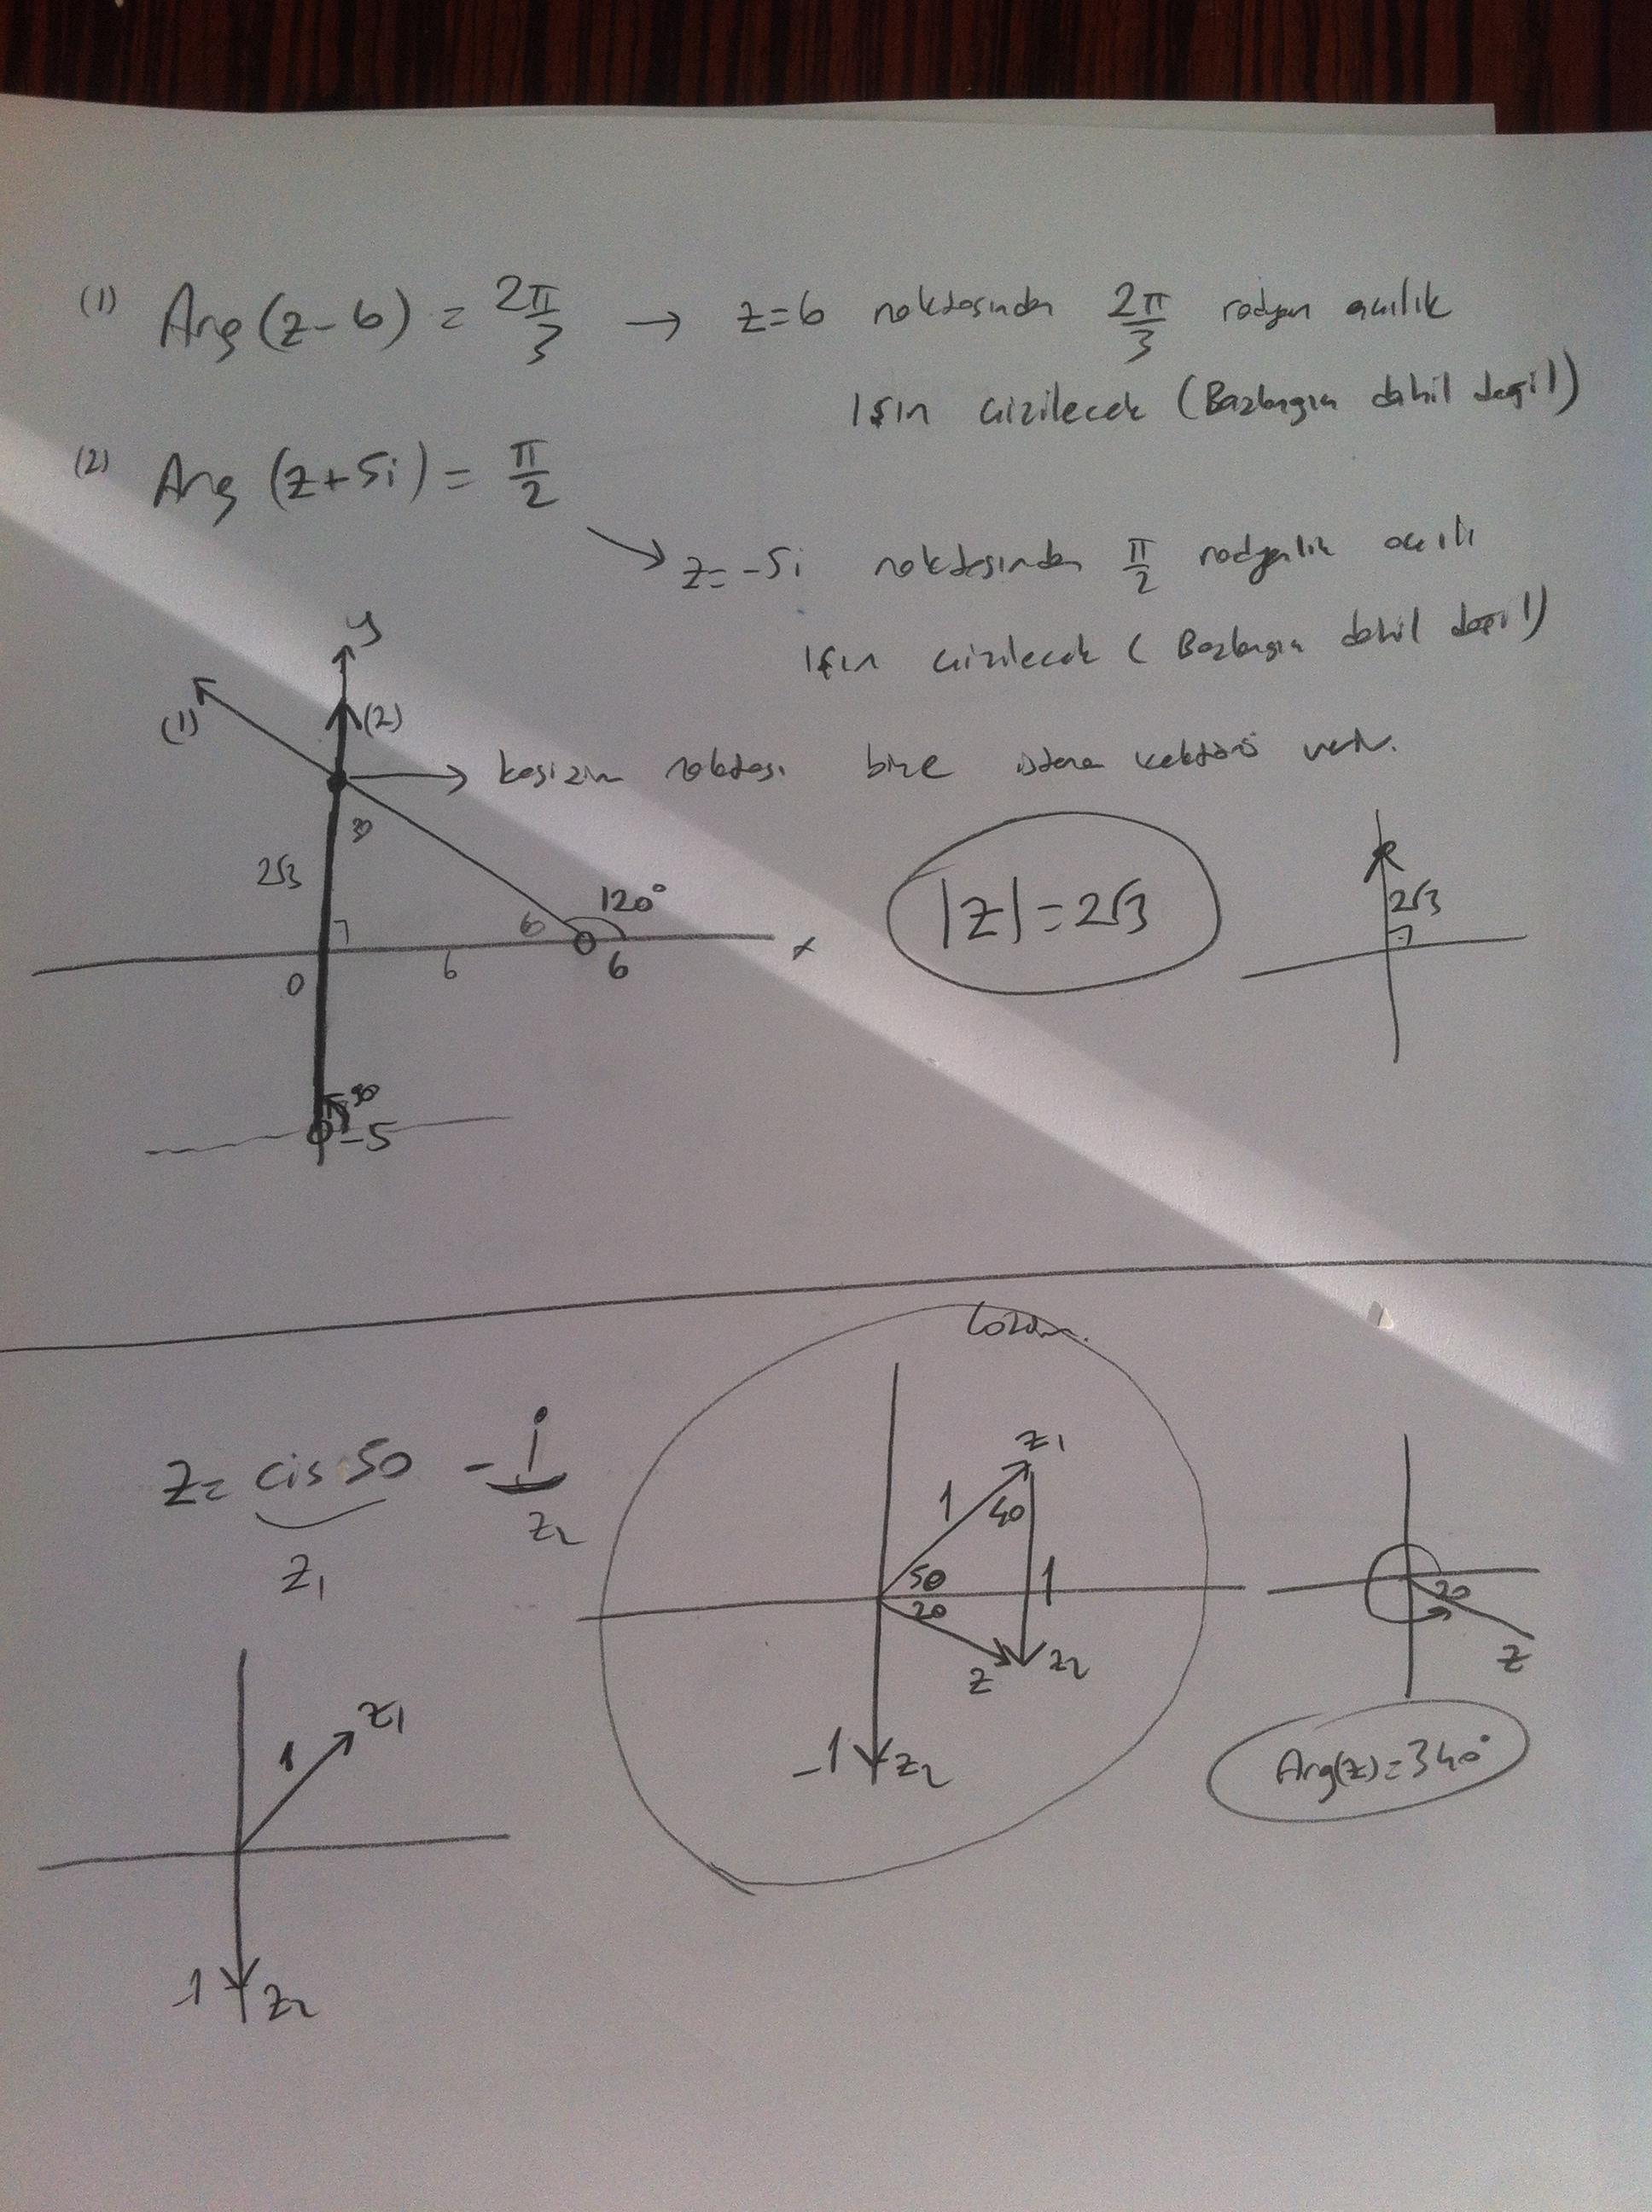 (1) Arg(z-6) = 2π/3 → z=6 noktasından 2π/3 radyan açılık
Işın çizilecek (Bazlangın dahil değil)
(2) Arg (z+5i) = π/2
z=-5i noktasından π/2 radyanlık açılı
Işın çizilecek ( Bazlangın dahil değil)
y
(1)
(2)
kesizim noktası bize istene vektörü verir.
30
2√3
6
120°
|z|=2√3
2√3
x
0
6
6
90
-5
Çözüm.
z= cis 50 - i
z1
z2
z1
1
40
50
1
20
z
z2
-1
z2
20
z
1
z1
Arg(z)=340°
-1
z2